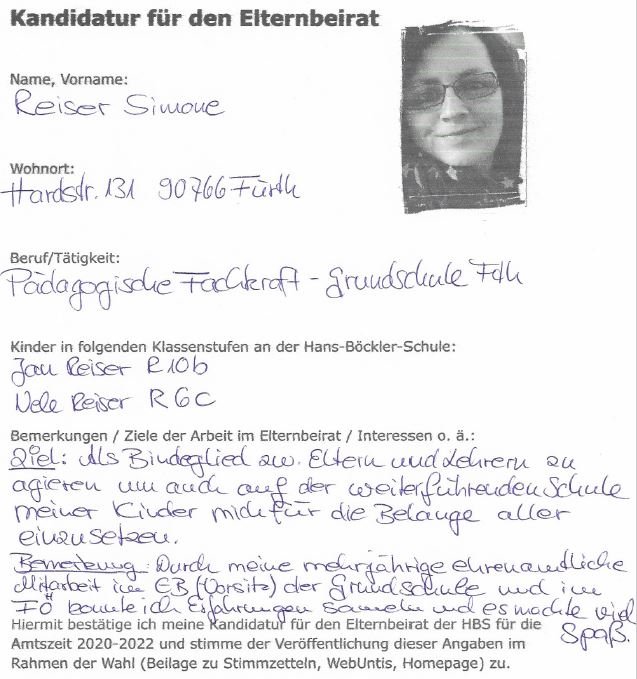 Kandidatur für den Elternbeirat
Name, Vorname:
Reiser Simone
Wohnort:
Hardstr. 131 90766 Fürth
Beruf/Tätigkeit:
Pädagogische Fachkraft - Grundschule Fdh
Kinder in folgenden Klassenstufen an der Hans-Böckler-Schule:
Jan Reiser R10b
Nele Reiser R6C
Bemerkungen / Ziele der Arbeit im Elternbeirat / Interessen o. ä.:
Ziel: Als Bindeglied zw. Eltern und Lehrern zu
agieren um auch auf der weiterführenden Schule
meiner Kinder mich für die Belange aller
einzusetzen.
Bemerkung: Durch meine mehrjährige ehrenamtliche
Mitarbeit im EB (Vorsitz) der Grundschule und im
FÖ konnte ich Erfahrungen sameln und es machte viel
Spaß.
Hiermit bestätige ich meine Kandidatur für den Elternbeirat der HBS für die
Amtszeit 2020-2022 und stimme der Veröffentlichung dieser Angaben im
Rahmen der Wahl (Beilage zu Stimmzetteln, WebUntis, Homepage) zu.